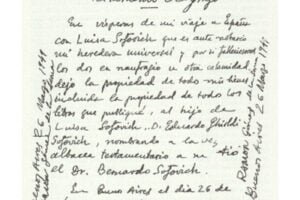 En vísperas de mi viaje a España
con Luisa Sofovich que es ante notario
mi heredera universal y por si falleciésemos
los dos en naufragio u otra calamidad,
dejo la propiedad de todos mis libros,
incluido la propiedad de todos los
libros que publiqué, al hijo de
Luisa Sofovich, D. Eduardo Ghioldi
Sofovich, nombrando a la vez
albacea testamentario a su tío
el Dr. Bernardo Sofovich.
En Buenos Aires el día 26 de
Buenos Aires 26 Marzo 1949
Ramón Gómez de la Serna
Buenos Aires 26 Marzo 1949